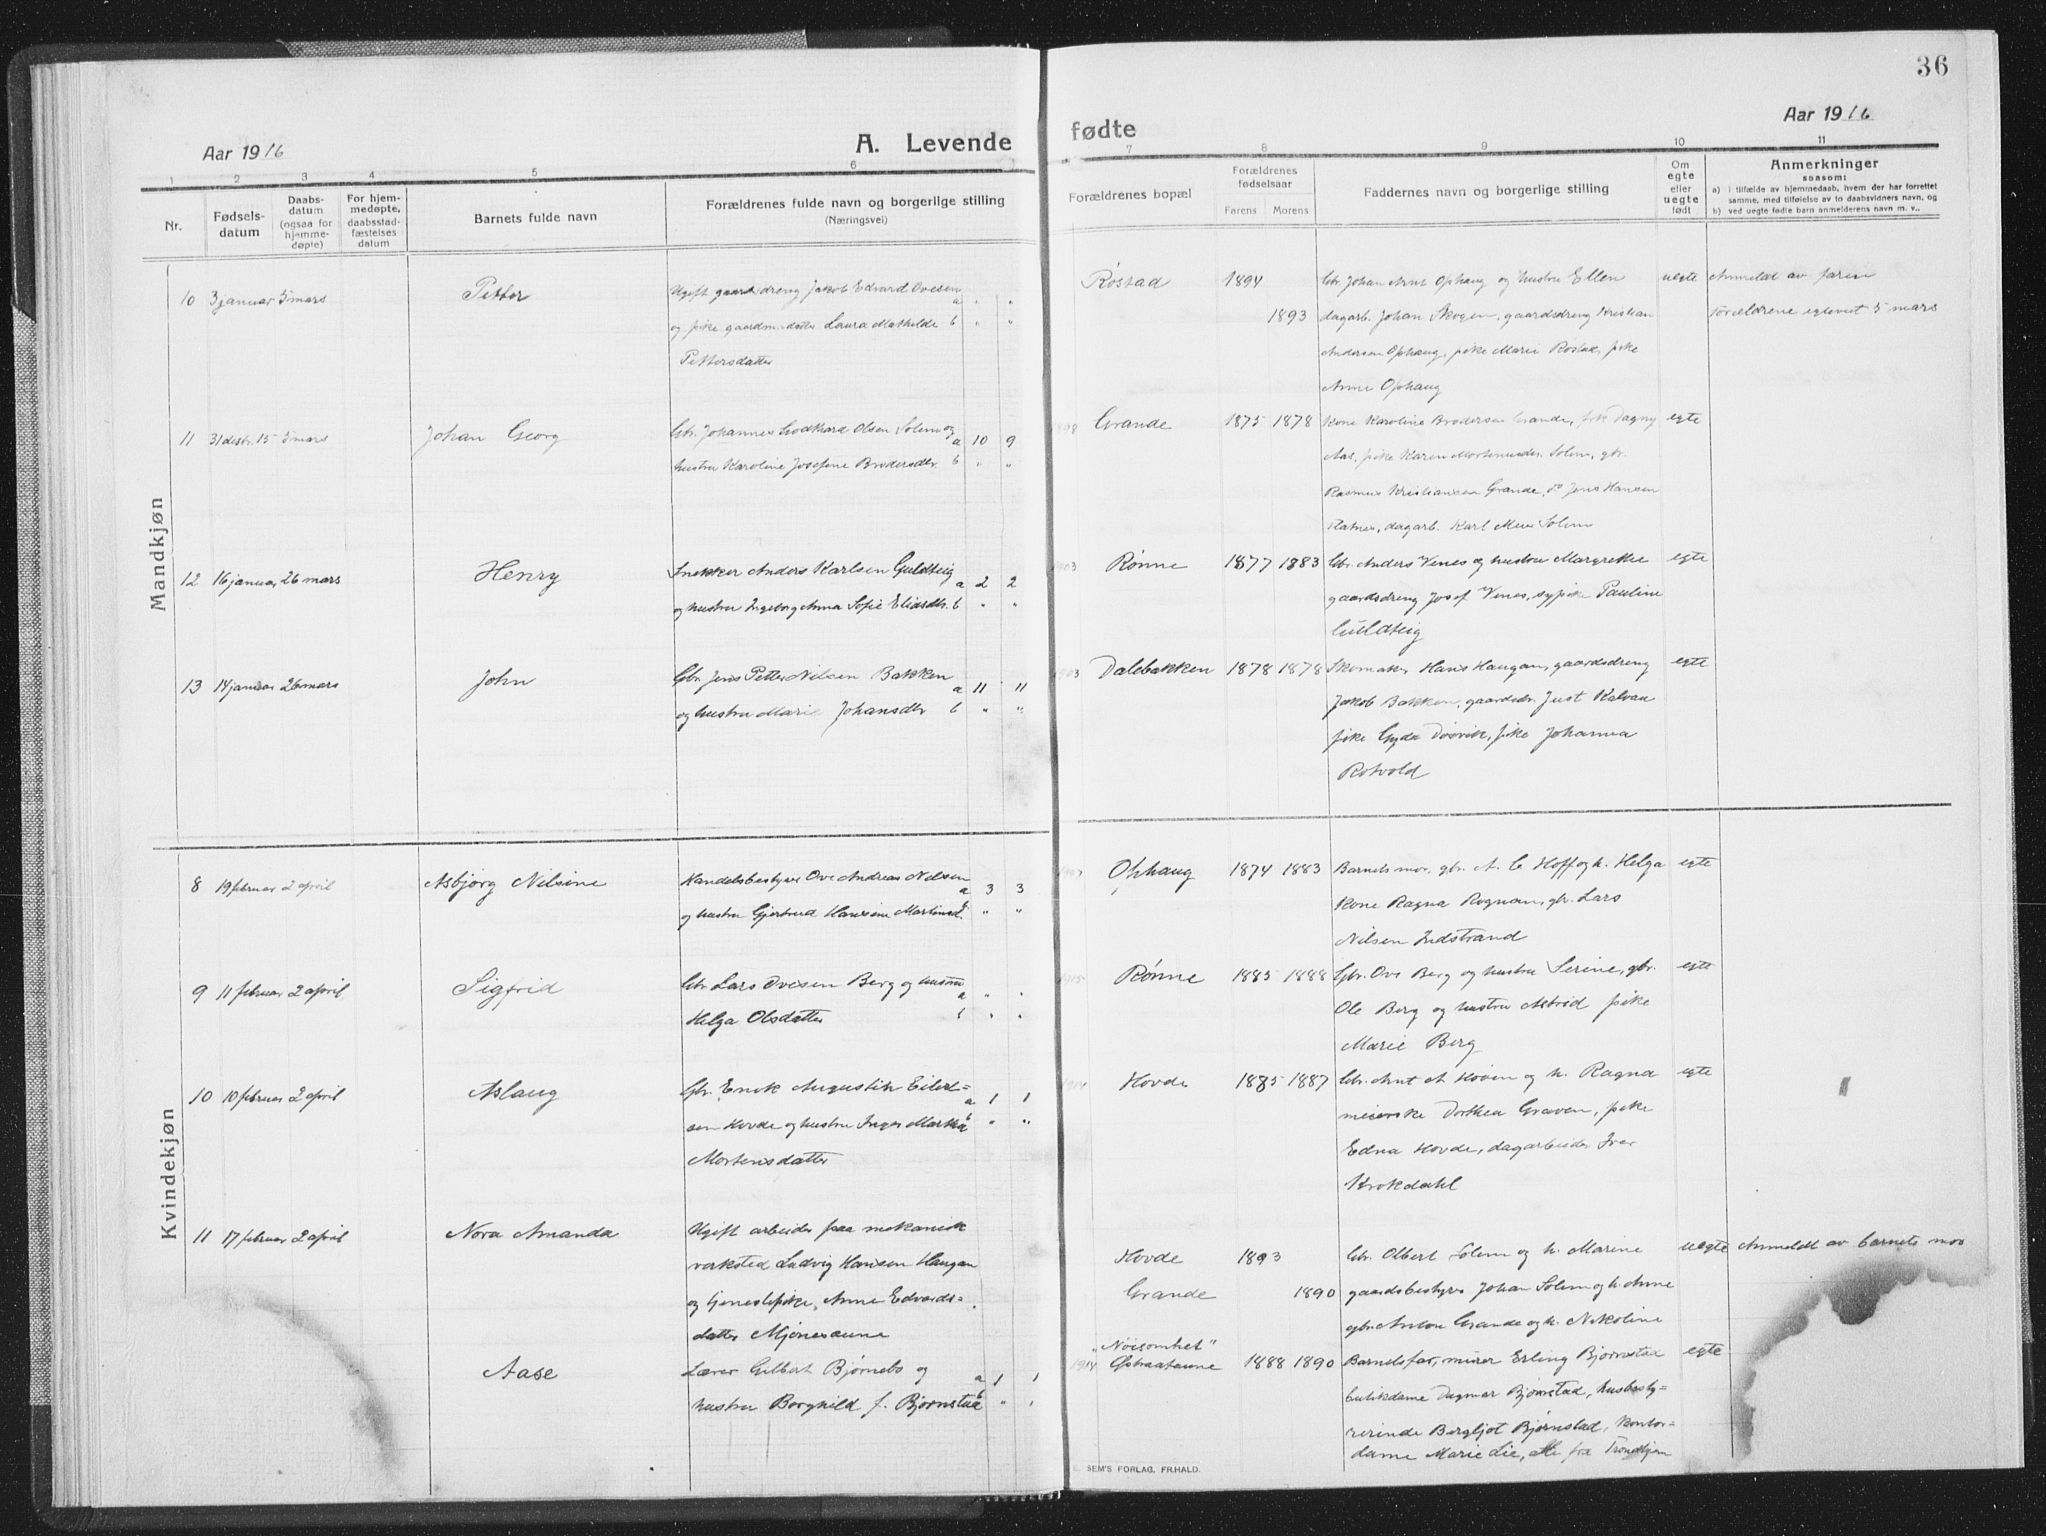 36
Aar 1916
A. Levende
fødte
Aar 1916
1 2 3 4 5 6 7 8 9 10 11
Nr.
Fødsels-
datum
Daabs-
datum
(ogsaa for
hjemme-
døpte)
For hjem-
medøpte,
daabsstad-
fæstelses
datum
Barnets fulde navn
Forældrenes fulde navn og borgerlige stilling
(Næringsvei)
Forældrenes bopæl
Forældrenes
fødselsaar
Farens Morens
Faddernes navn og borgerlige stilling
Om
egte
eller
uegte
født
Anmerkninger
saasom:
a) i tilfælde av hjemmedaab, hvem der har forrettet
samme, med tilføielse av to daabsvidners navn, og
b) ved uegte fødte barn anmelderens navn m. v.,
Mandkjøn
10 3 januar 5 mars Petter
Ugift gaardsdreng Jakob Edvard Ovesen a " "
og pike, gaardm.datter Laura Mathilde b " "
Pettersdatter
Røstad 1894
1893
Gbr. Johan Arnt Ophaug og hustru Ellen
dagarb. Johan Skogen, gaardsdreng Kristian
Andersen Ophaug, pike Marie Røstad, pike
Anne Ophaug
uegte
Anmeldt av faren
Forældrene egteviet 5 mars
11 31 destr. 15 5 mars Johan Georg
Gbr. Johannes Godthard Olsen Solem og a 10 9
hustru Karoline Josefine Brodersdtr. b " "
Grande 1875 1878
Kone Karoline Brodersen Grande, pike Dagny
Aas, pike Karen Mortensdtr. Solem, gbr.
Rasmus Kristiansen Grande, do Jens Hansen
Flatnes, dagarb. Karl Solem
egte
12 16 januar 26 mars Henry
Snekker Anders Karlsen Guldteig a 2 2
og hustru Ingeborg Anna Sofie Eliasdtr. b " "
1903 Rønne 1877 1883
Gbr. Anders Venes og hustru Margrethe
gaardsdreng Josef Venes, sypike Pauline
Guldteig
egte
13 14 januar 26 mars John
Gbr. Jens Petter Nilsen Bakken a 11 11
og hustru Marie Johansdtr b " "
1903 Dalebakken 1878 1878
Skomaker Hans Haugan, gaardsdreng
Jakob Bakken, gaardsdr. Just Kalvaa
pike Gyda Døsvik, pike Johanna
Rotvold
egte
Kvindekjøn
8 19 februar 2 april Asbjørg Nilsine
Handelsbestyrer Ove Andreas Nelsen a 3 3
og hustru Gjertrud Hansine Martinsd. b " "
1907 Ophaug 1874 1883
Barnets mor, gbr. A. C. Hoff og h. Helga
Kone Ragna Rognan, gbr. Lars
Nilsen Indstrand
egte
9 11 februar 2 april Sigfrid
Gbr. Lars Ovesen Berg og hustru a " "
Helga Olsdatter b " "
1915 Rønne 1885 1888
Gbr. Ove Berg og hustru Serine, gbr.
Ole Berg og hustru Astrid pike
Marie Berg
egte
10 10 februar 2 april Aslaug
Gbr. Enok Augustin Eilert= a 1 1
sen Hovde og hustru Inger Martha b " "
Mortensdatter
1914 Hovde 1885 1887
Gbr. Arnt A. Hoven og h. Ragna
meierske Dorthea Graven, pike
Edna Hovde, dagarbeider Iver
Krokdahl
egte
11 17 februar 2 april Nora Amanda
Ugift arbeider paa mekanisk
verksted Ludvig Hansen Haugan
og tjenestepike, Anne Edvards=
datter Mjønesaune
Hovde 1893
Grande 1890
Gbr. Olbert Solem og h. Marine
gaardsbestyrer Johan Solem og h. Anne
gbr. Anton Grande og h. Nikoline
uegte
Anmeldt av barnets mor
Aase
Lærer Gilbert Bjørnebo og a 1 1
hustru Borghild f. Bjørnstad b " "
"Nøisomhet"
1914 Østraataune 1888 1890
Barnets far, murer Erling Bjørnstad
butikdame Dagmar Bjørnstad, husbesty=
rerinde Bergljot Bjørnstad, kontor=
dame Marie Lie, alle fra Trondhjem
egte
SEM'S FORLAG, FR.HALD.